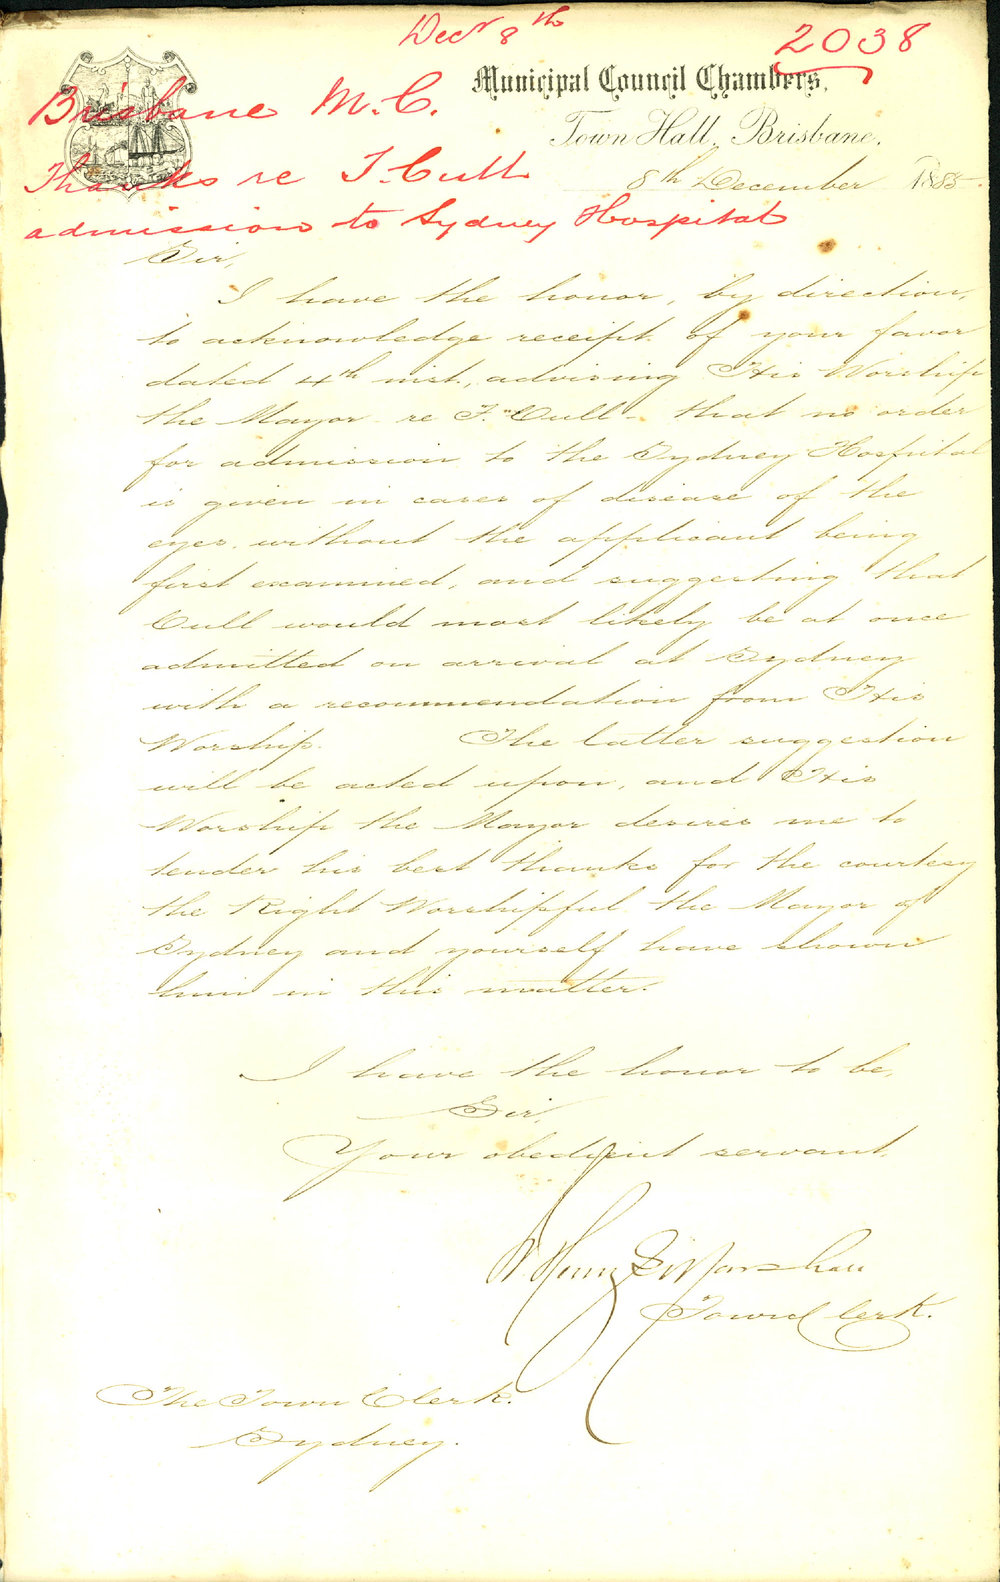 Decr 8th
2038
Municipal Council Chambers,
Brisbane M.C.
Town Hall, Brisbane.
Thanks re T. Cull
8th December 1885.
admission to Sydney Hospital
Sir,
I have the honor, by direction,
to acknowledge receipt of your favor
dated 4th inst., advising His Worship
the Mayor re T. Cull - that no order
for admission to the Sydney Hospital
is given in cases of disease of the
eyes without the applicant being
first examined, and suggesting that
Cull would most likely be at once
admitted on arrival at Sydney
with a recommendation from His
Worship. The latter suggestion
will be acted upon, and His
Worship the Mayor desires me to
tender his best thanks for the courtesy
the Right Worshipful the Mayor of
Sydney and yourself have shown
him in this matter.
I have the honor to be,
Sir,
Your obedient servant,
Henry G. Marshall
Town Clerk.
The Town Clerk.
Sydney.